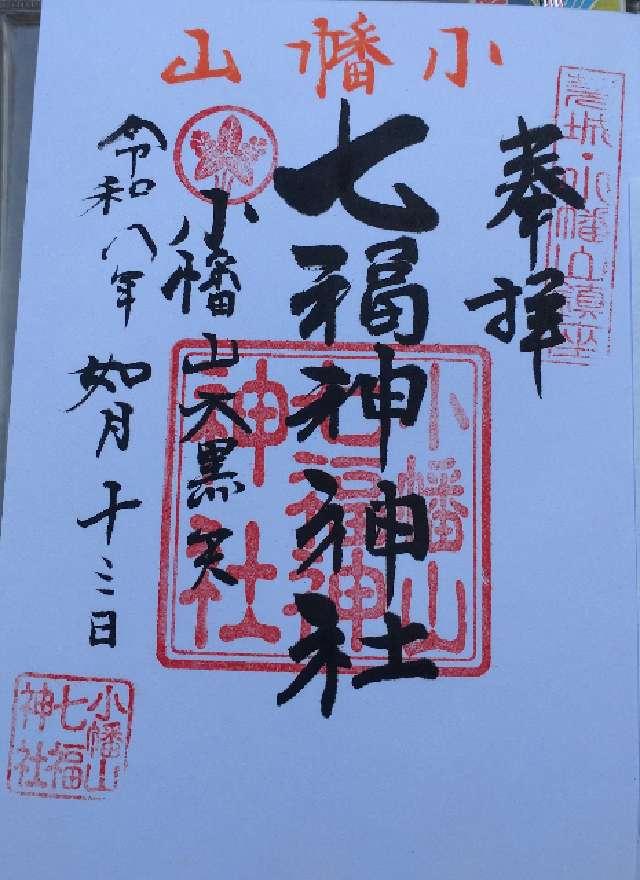 小幡山
茨城・小幡山鎮座
奉拝
七福神神社
小幡山
七福神
神社
小幡山大黒笑
令和八年如月十三日
小幡山
七福
神社